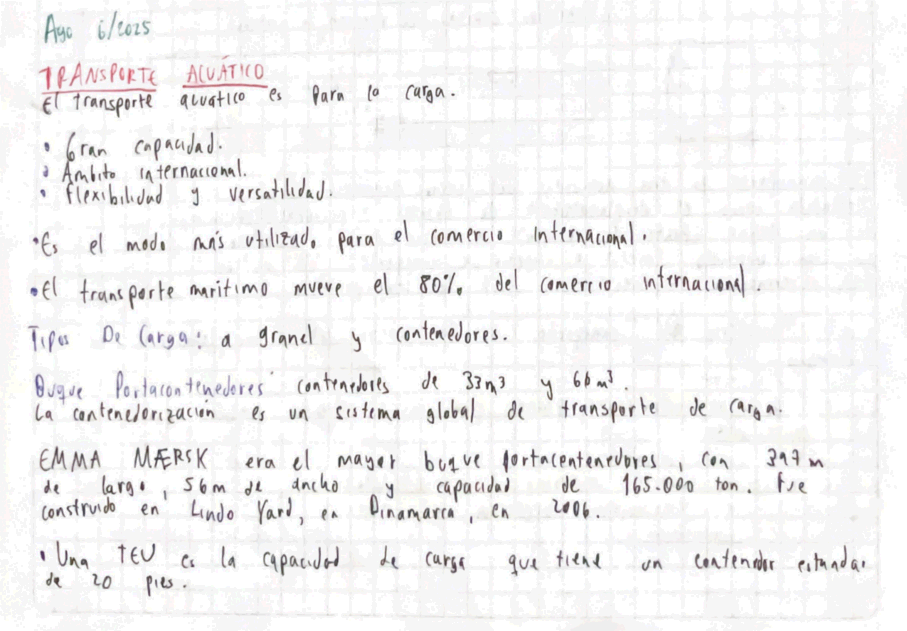 Ago 6/2025
TRANSPORTE ACUÁTICO
El transporte acuático es para la carga.
• Gran capacidad.
• Ámbito internacional.
• Flexibilidad y versatilidad.
• Es el modo más utilizado para el comercio internacional.
• El transporte marítimo mueve el 80% del comercio internacional.
Tipos De Carga: a granel y contenedores.
Buque Portacontenedores contenedores de 33m3 y 66m³.
La contenedorización es un sistema global de transporte de carga.
EMMA MÆRSK era el mayor buque portacentenedores, con 397m
de largo, 56m de ancho y capacidad de 165.000 ton. Fue
construido en Lindo Yard, en Dinamarca, en 2006.
• Una TEU es la capacidad de carga que tiene un contenedor estandar
de 20 pies.